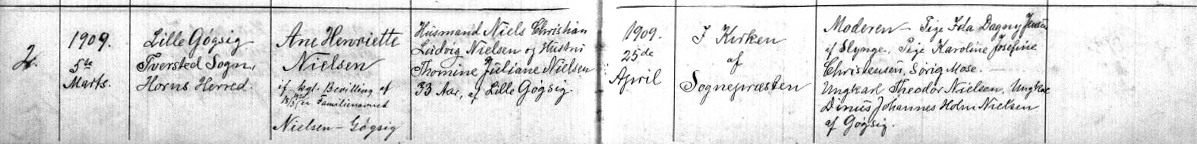 2.
1909.
5te
Marts.
Lille Gøgsig
Tversted Sogn,
Horns Herred.
Ane Henriette
Nielsen
if. kgl. Bevilling af
Familienavned
Nielsen-Gøgsig
Husmand Niels Christian
Ludvig Nielsen og Hustru
Thomine Juliane Nielsen
33 Aar, af Lille Gøgsig.
1909.
25de
April
I Kirken
af
Sognepræsten
Moderen - Pige Ida Dagny Jensen
af Slynge, Pige Karoline Josefine
Christensen, Sørig Mose.
Ungkarl Theodor Nielsen, Ungkarl
Dinus Johannes Holm Nielsen
af Gøgsig.